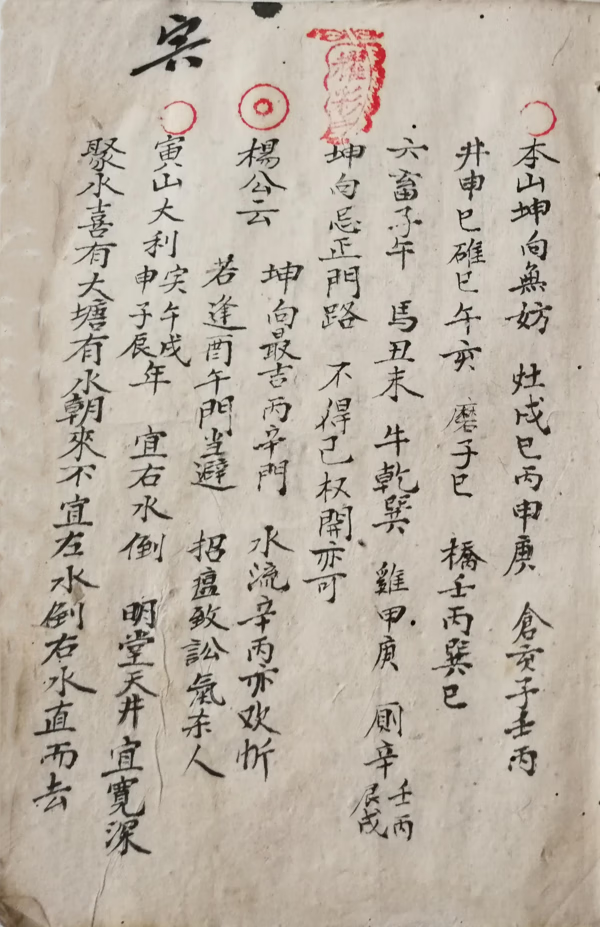 本山坤向無妨　灶戌巳丙申庚　倉亥子壬丙
井申巳碓巳午亥　磨子巳　橋壬丙巽巳
六畜子午　馬丑未　牛乾巽　雞甲庚　厠辛壬丙辰戌
坤向忌正門路　不得已权開亦可
楊公云　坤向最吉丙辛門　水流辛丙亦欢忻
若逢酉午門当避　招瘟致訟氣杀人
寅山大利寅午戌申子辰年　宜右水倒　明堂天井宜寬深
聚水喜有大塘有水朝來不宜左水倒右水直而去